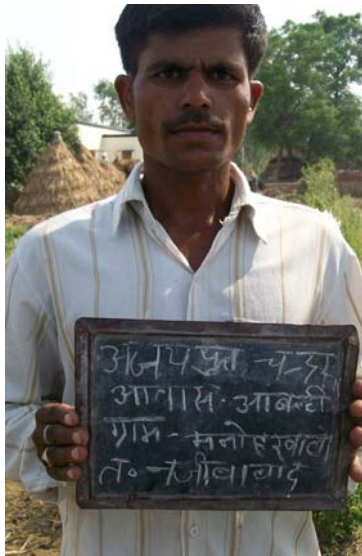 अजय पुत्र चन्दर
आवास. आबन्टी
ग्राम - मनोहरवाला
त० नजीबाबाद